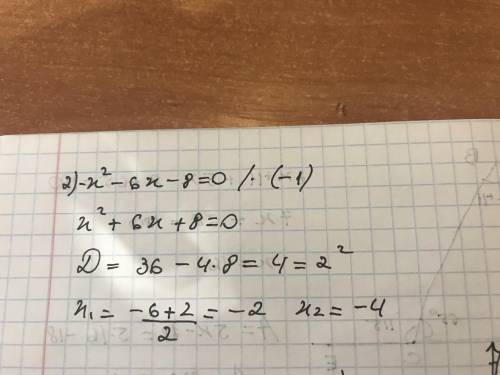 2) -x² - 6x - 8 = 0 /· (-1)
x² + 6x + 8 = 0
D = 36 - 4·8 = 4 = 2²
x₁ = (-6+2)/2 = -2   x₂ = -4